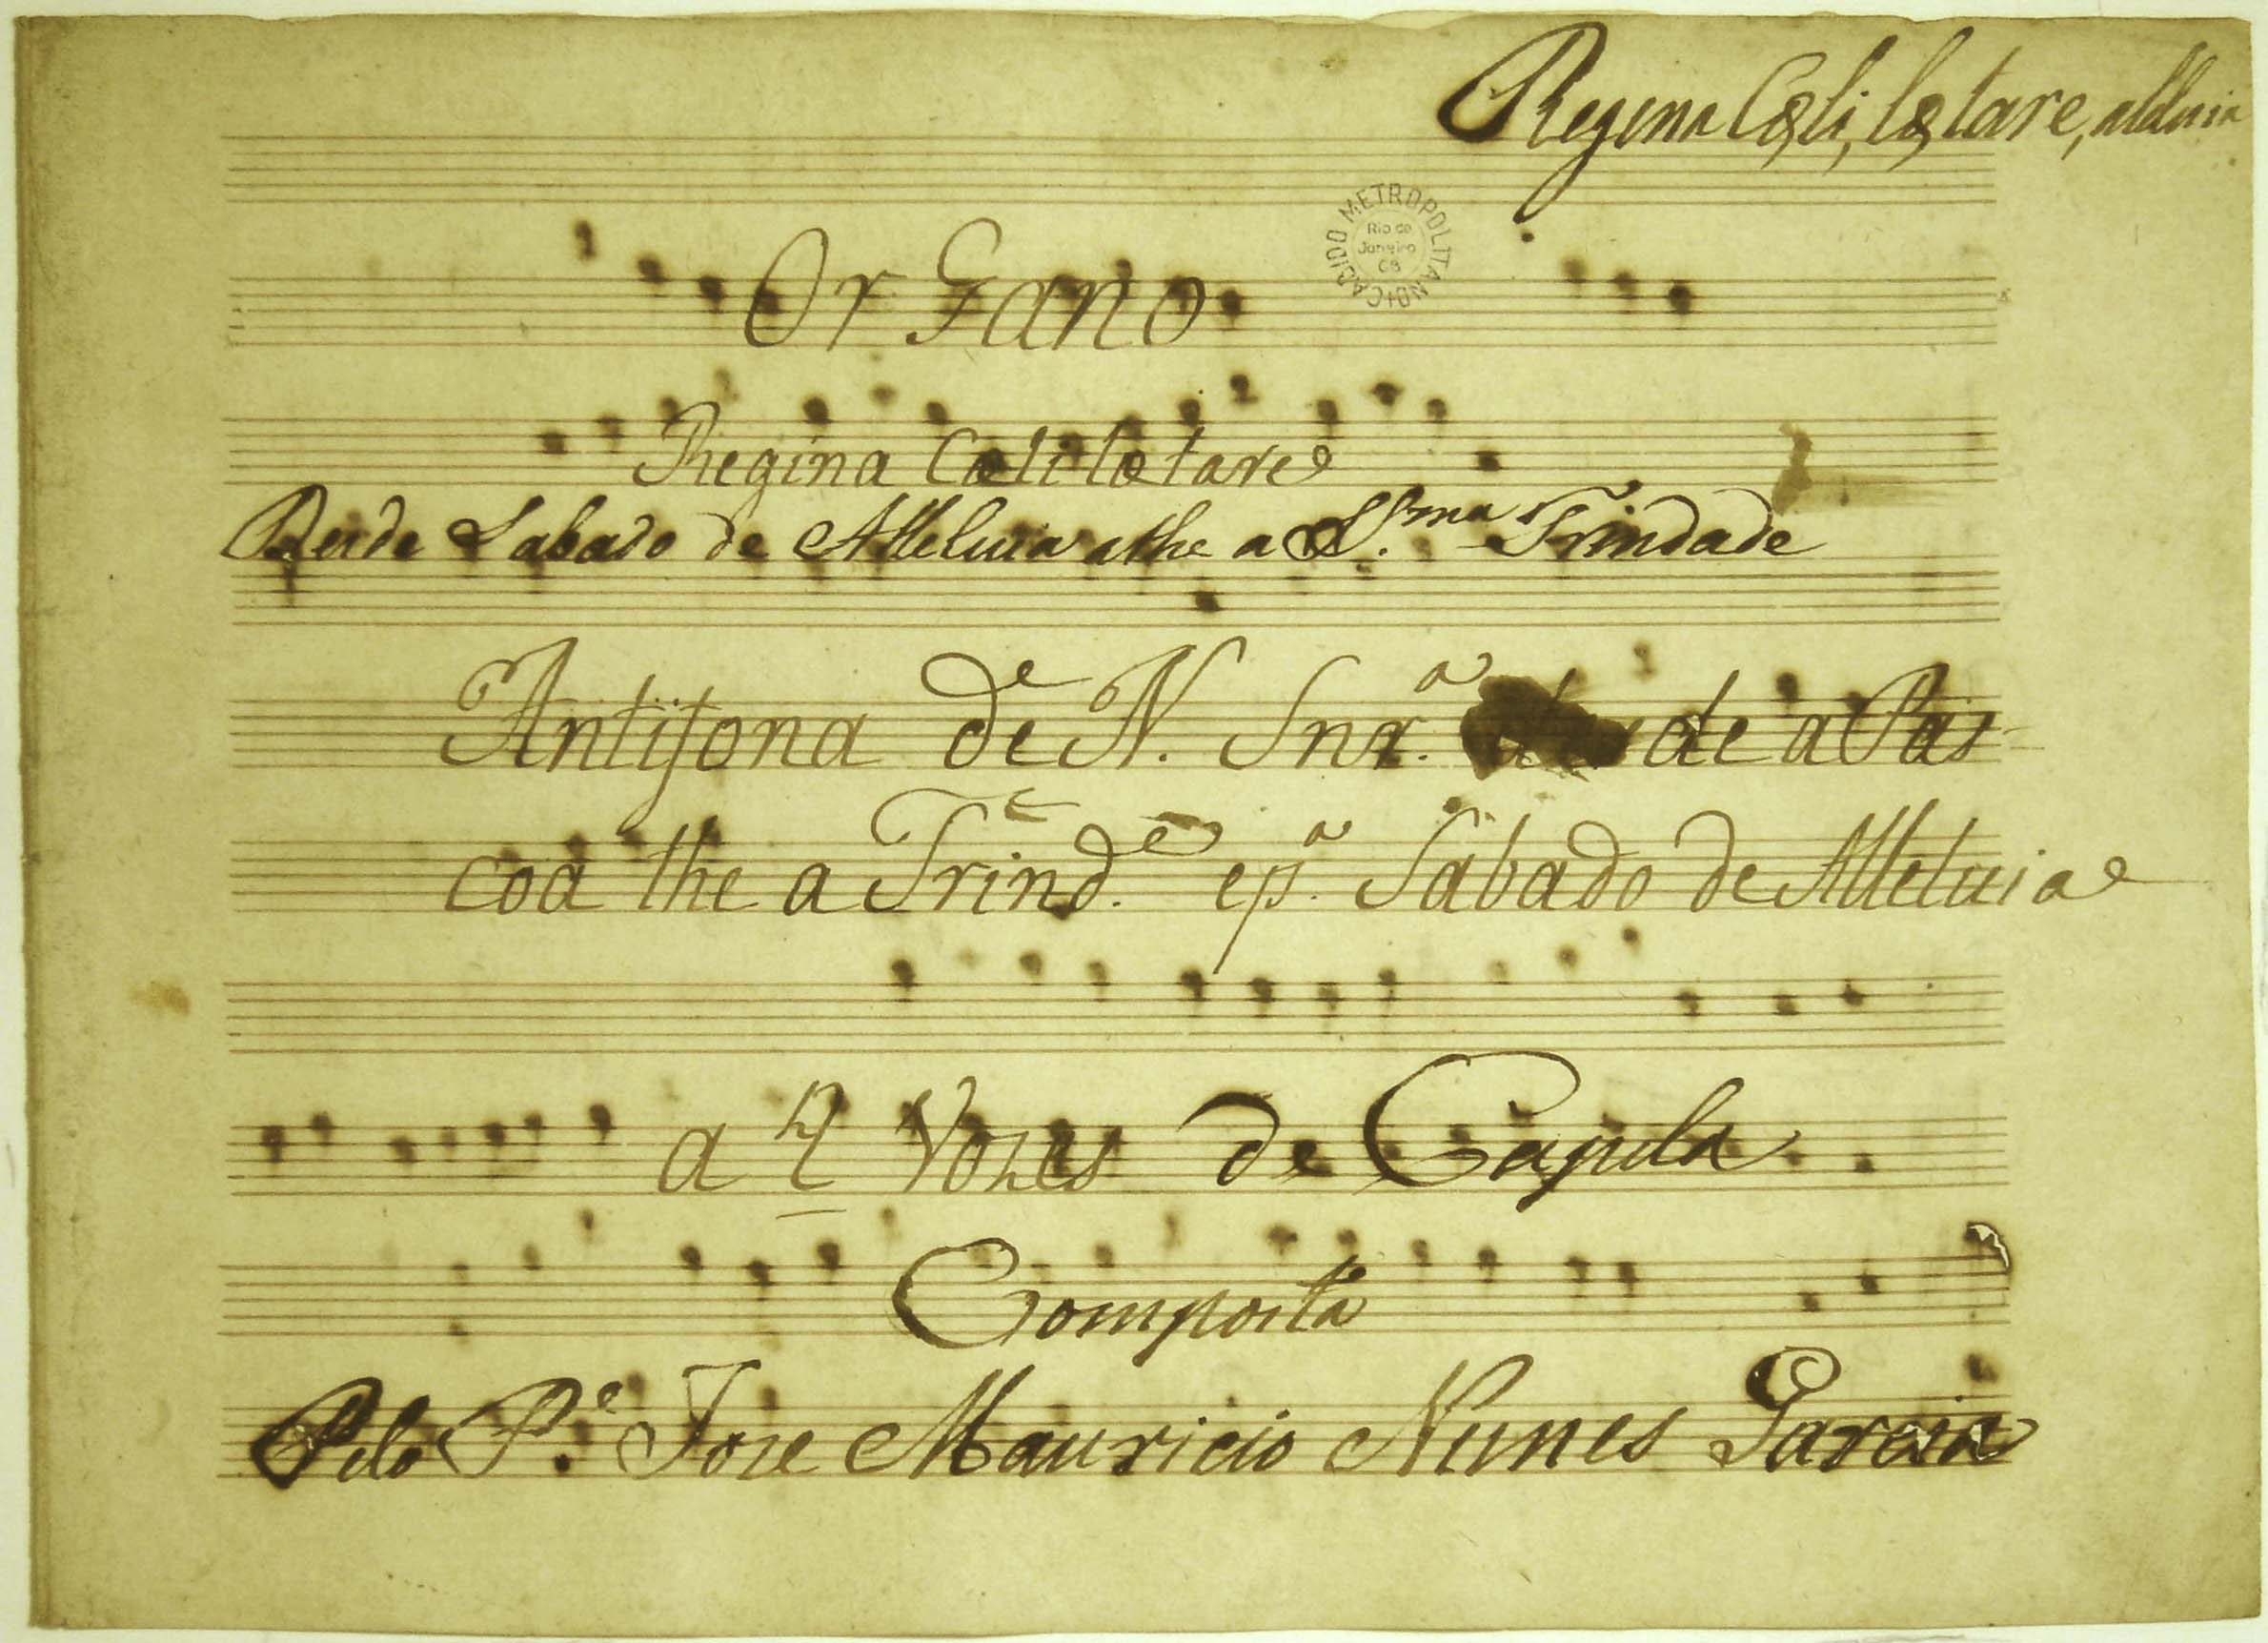 Regina Cœli, lætare, alleluia
CABIDO METROPOLITANO
Rio de
Janeiro
GB
Organo
Regina Cœli lætare
Desde Sabado de Alleluia athe a SS.ma Trindade
Antifona de N. Snr.ª de a Pas-
coa the a Trind.e e p.ª Sabado de Alleluia
a 4 Vozes de Capela
Composta
Pelo P.e Jose Mauricio Nunes Garcia